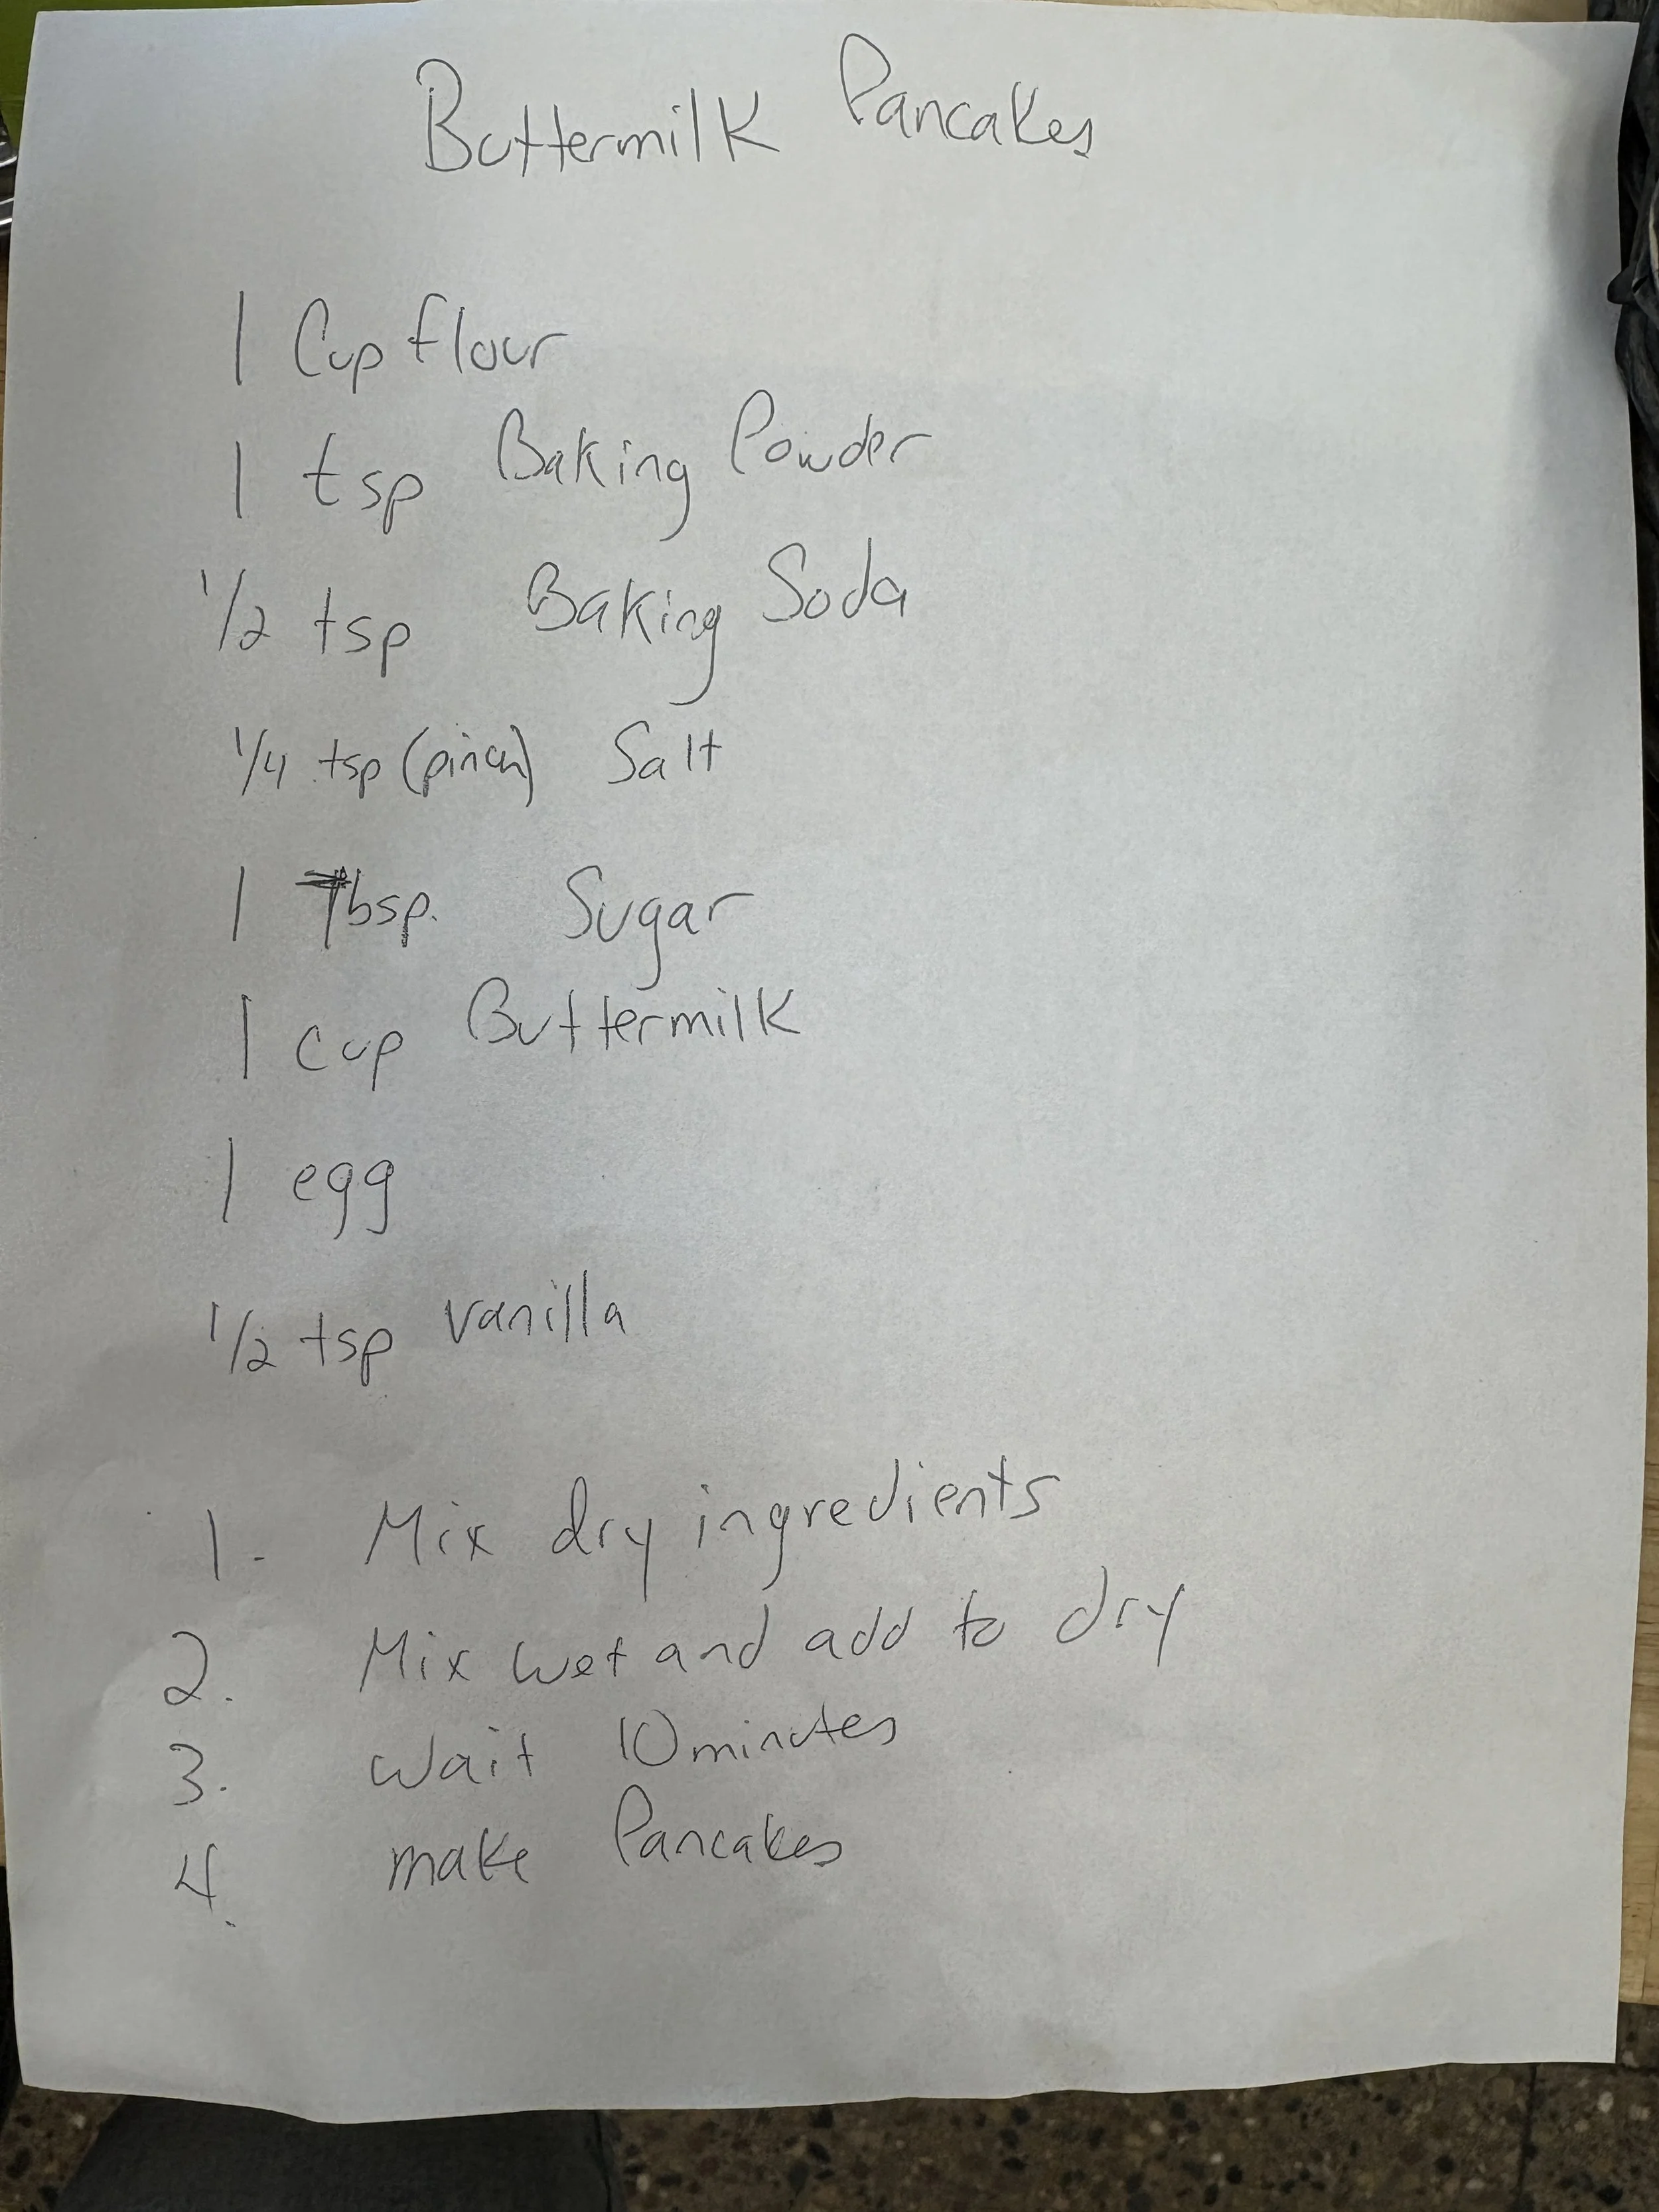 Buttermilk Pancakes
1 Cup flour
1 tsp Baking Powder
1/2 tsp Baking Soda
1/4 tsp (pinch) Salt
1 Tbsp. Sugar
1 cup Buttermilk
1 egg
1/2 tsp vanilla
1. Mix dry ingredients
2. Mix wet and add to dry
3. Wait 10 minutes
4. make Pancakes